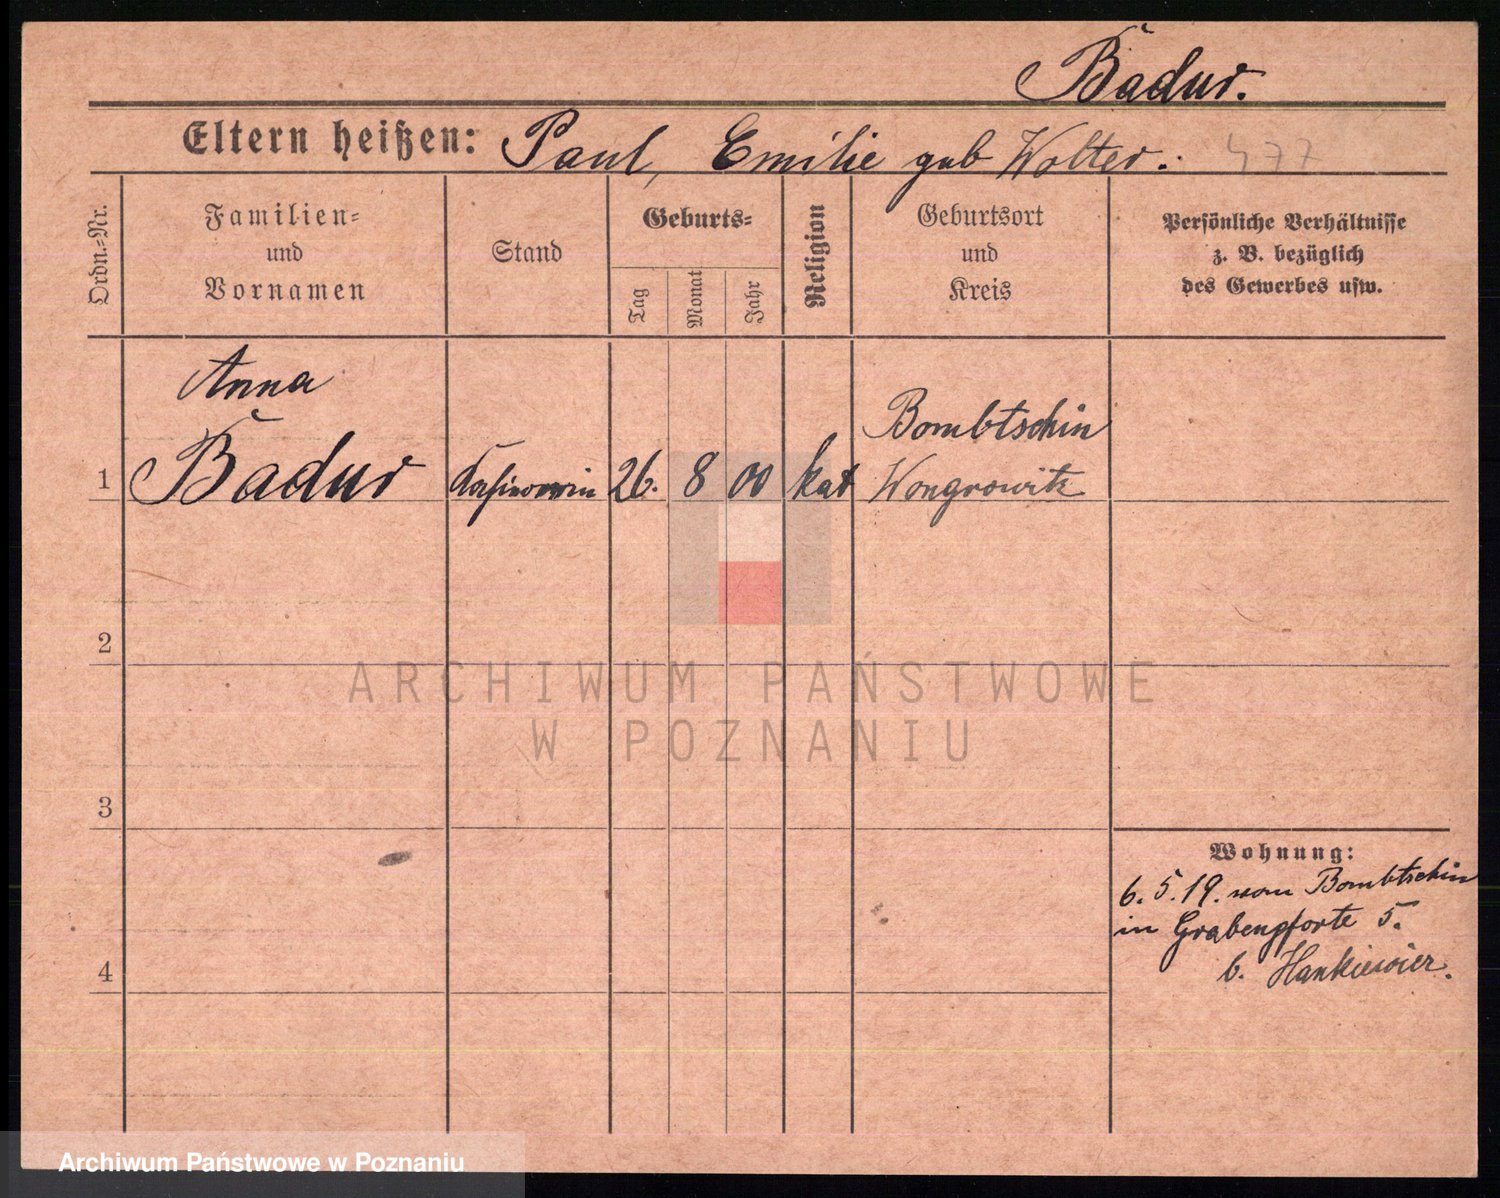 Badur.
Eltern heißen: Paul, Emilie geb Wolter. 477
Ordn.=Nr.
Familien=
und
Vornamen
Stand
Geburts=
Tag
Monat
Jahr
Religion
Geburtsort
und
Kreis
Persönliche Verhältnisse
z. B. bezüglich
des Gewerbes usw.
Anna
Bombtschin
1 Badur 26. 8 00 kat Wongrowitz
2
3
4
Wohnung:
6. 5. 19. von Bombtschin
in Grabenpforte 5.
b. Hankiewicz.
ARCHIWUM PAŃSTWOWE
W POZNANIU
Archiwum Państwowe w Poznaniu